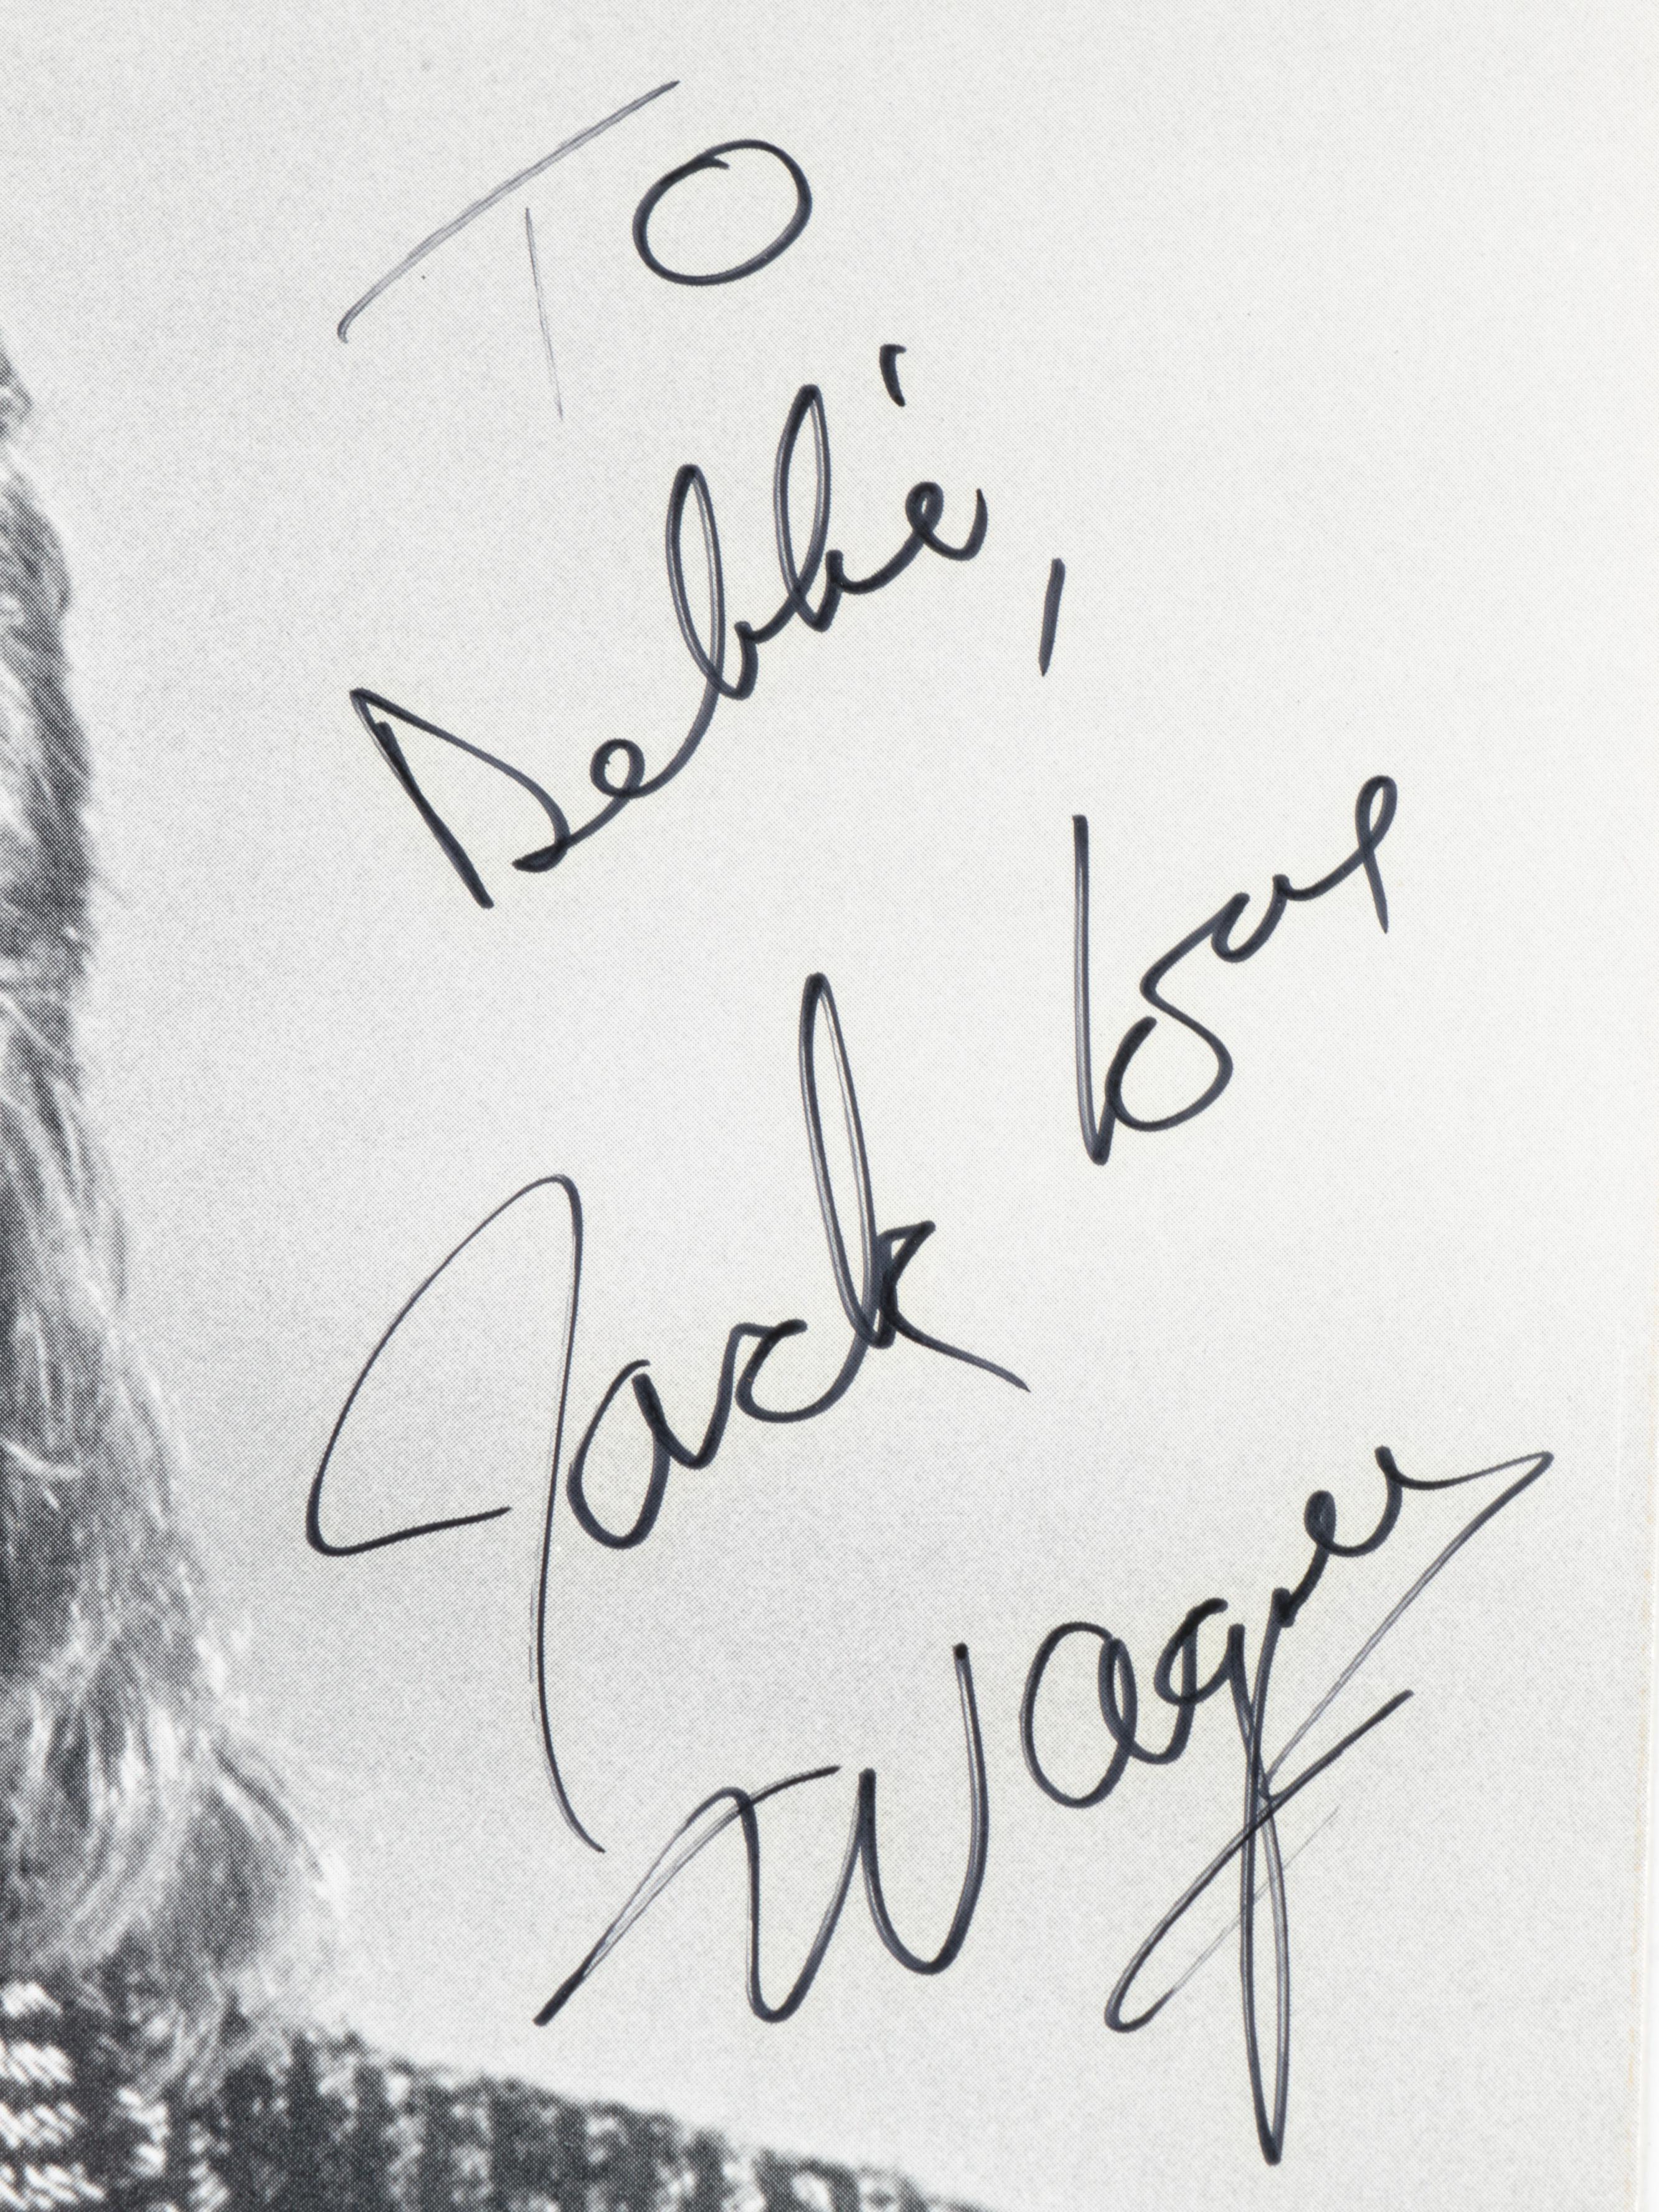 To
Debbie,
Love
Jack
Wagner